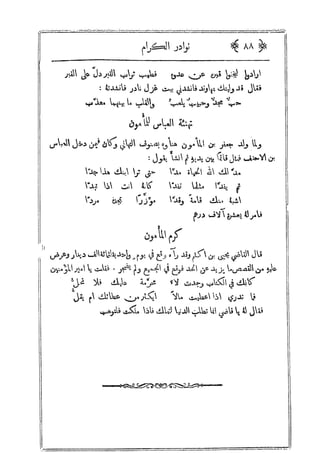 ﴿ ٨٨ ﴾ نوادر الكرام
ارادوا ليخفوا قبره عن عدوه فطيب تراب القبر دل على القبر
فقال قد وليتك نهاوند فانشدني بيت غزل نادر فانشدته :
حب مجد وحبيب يلعب والقلب ما بينهما معذب
تهنئة العباس للمأمون
ولما ولد جعفر بن المأمون هنأوه بصنوف التهاني وكان فيمن دخل العباس
بن الاحنف فمثل قائماً بين يديه ثم انشأ يقول :
مد لك الله الحياة مدّا حتى ترا ابنك هذا جدّا
ثم يفدّا مثلما تفدّا كانه انت اذا تبدّا
اشبه منك قامة وقدّا مؤزّراً بمجده مردّا
فامر له بعشرة آلاف درهم
كرم المأمون
قال القاضي يحيى بن اكثم وقد رآه وقع في يوم واحد بثلثمائة الف دينار وعرض
عليه من القصص ما يزيد عن الحد فوقع في الجميع ولم يضجر . فقلت يا امير المؤمنين
كانك في الكتاب وجدت لاء محرمة عليك فلا تحل
فما تدري اذا اعطيت مالاً ايكثر من عطائك ام يقل
فقال له يا قاضي انما تطلب الدنيا لتملك فاذا ملكت فلتوهب